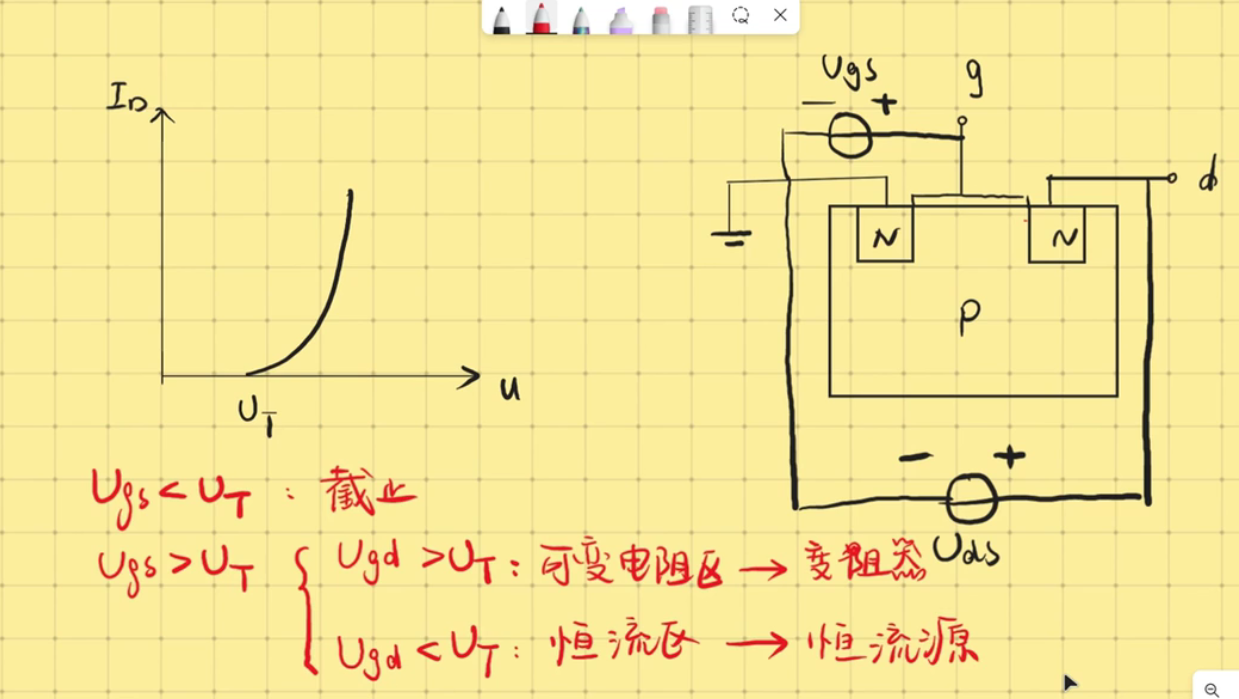 I_D
U_T
u
Ugs
- +
g
d
N
N
P
- +
Uds
Ugs < U_T : 截止
Ugs > U_T { Ugd > U_T : 可变电阻区 → 变阻器
Ugd < U_T : 恒流区 → 恒流源